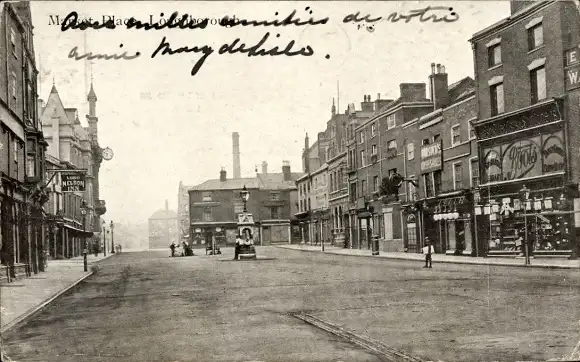 Market Place, Loughborough
Avec milles amitiés de votre
amie Mary delisle.
LORD
NELSON
INN
Boots
E
W